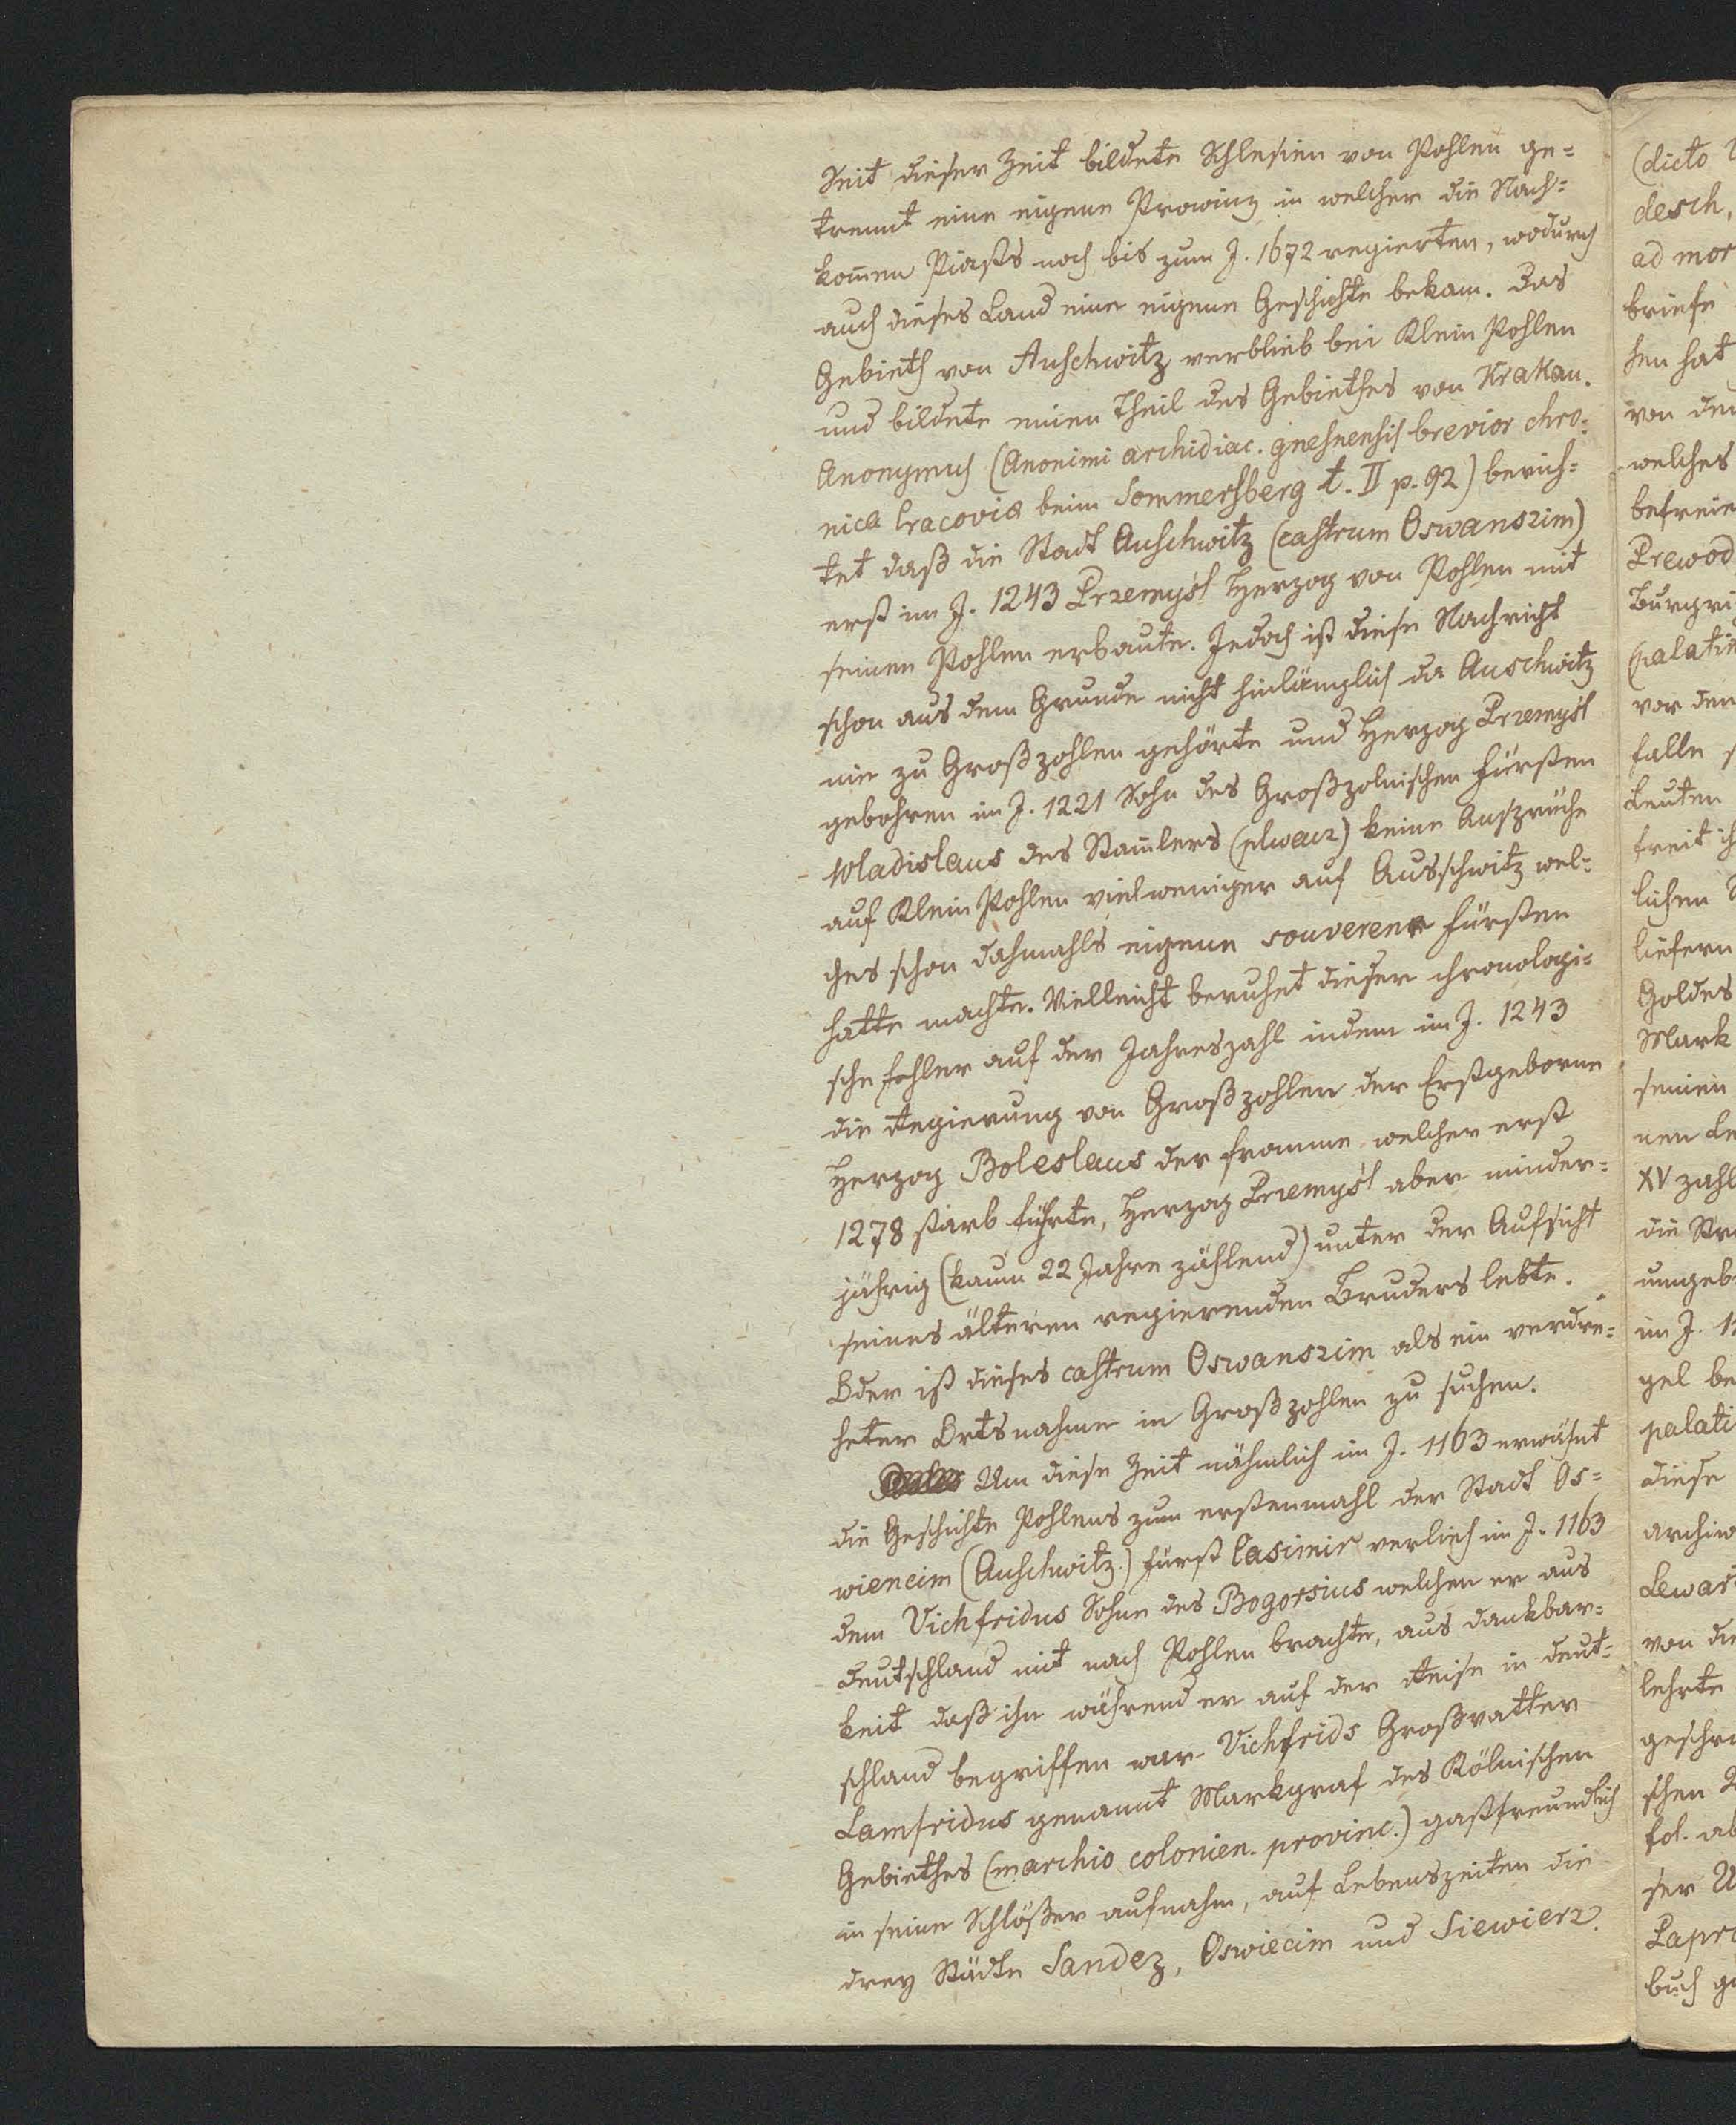 Seit dieser Zeit bildete Schlesien von Pohlen ge=
trennt eine eigene Prowinz in welcher die Nach=
kom̄en Piasts noch bis zum J. 1672 regierten, wodurch
auch dieses Land eine eigene Geschichte bekam. Das
Gebieth von Auschwitz verblieb bei Klein Pohlen
und bildete einen Theil des Gebiethes von Krakau.
Anonymus (Anonimi archidiac. gnesnensis brevior chro=
nica Cracoviæ beim Sommersberg t. II p. 92) berich=
tet daß die Stadt Auschwitz (castrum Oswanszim)
erst im J. 1243 Przemyśl Herzog von Pohlen mit
seinen Pohlen erbaute. Jedoch ist diese Nachricht
schon aus dem Grunde nicht hinlänglich da Auschwitz
nie zu Großpohlen gehörte und Herzog Przemyśl
gebohren im J. 1221 Sohn des Großpolnischen Fürsten
Wladislaus des Stam̄lers (plwacz) keine Ansprüche
auf Klein Pohlen vielweniger auf Ausschwitz wel=
ches schon dahmahls eigene souverene Fürsten
hatte machte. Vielleicht beruhet dieser chronologi=
sche Fehler auf der Jahreszahl indem im J. 1243
die Regierung von Großpohlen der Erstgeborne
Herzog Boleslaus der fromme welcher erst
1278 starb führte, Herzog Przemyśl aber minder=
jährig (kaum 22 Jahre zählend) unter der Aufsicht
seines älteren regierenden Bruders lebte.
Oder ist dieses castrum Oswanszim als ein verdre=
heter Ortsnahme in Großpohlen zu suchen.
Um diese Zeit nähmlich im J. 1163 erwähnt
die Geschichte Pohlens zum erstenmahl der Stadt Os=
wiencim (Auschwitz.) Fürst Casimir verlieh im J. 1163
dem Vichfridus Sohne des Bogorsius welchen er aus
Deutschland mit nach Pohlen brachte, aus Dankbar=
keit daß ihn während er auf der Reise in Deut=
schland begriffen war Vichfrids Großvatter
Lamfridus genannt Markgraf des Kölnischen
Gebiethes (marchio colonien. provinc.) gastfreundlich
in seine Schlößer aufnahm, auf Lebenszeiten die
drey Städte Sandez, Oswiecim und Siewierz.
(dicto
desch,
ad mor
briefe
hen hat
von den
welches
befreie
Prewod
Burgri
(palatin
vor der
falle
Leuten
freit ih
lichen
liefern
Goldes
Mark
seinen
nen Le
XV zahl
die Str
umgeb
im J. 1
gel be
palati
diese
archiw
Lewar
von die
lehrte
geschri
schen
fol. ab
ser U
Papro
buch ge